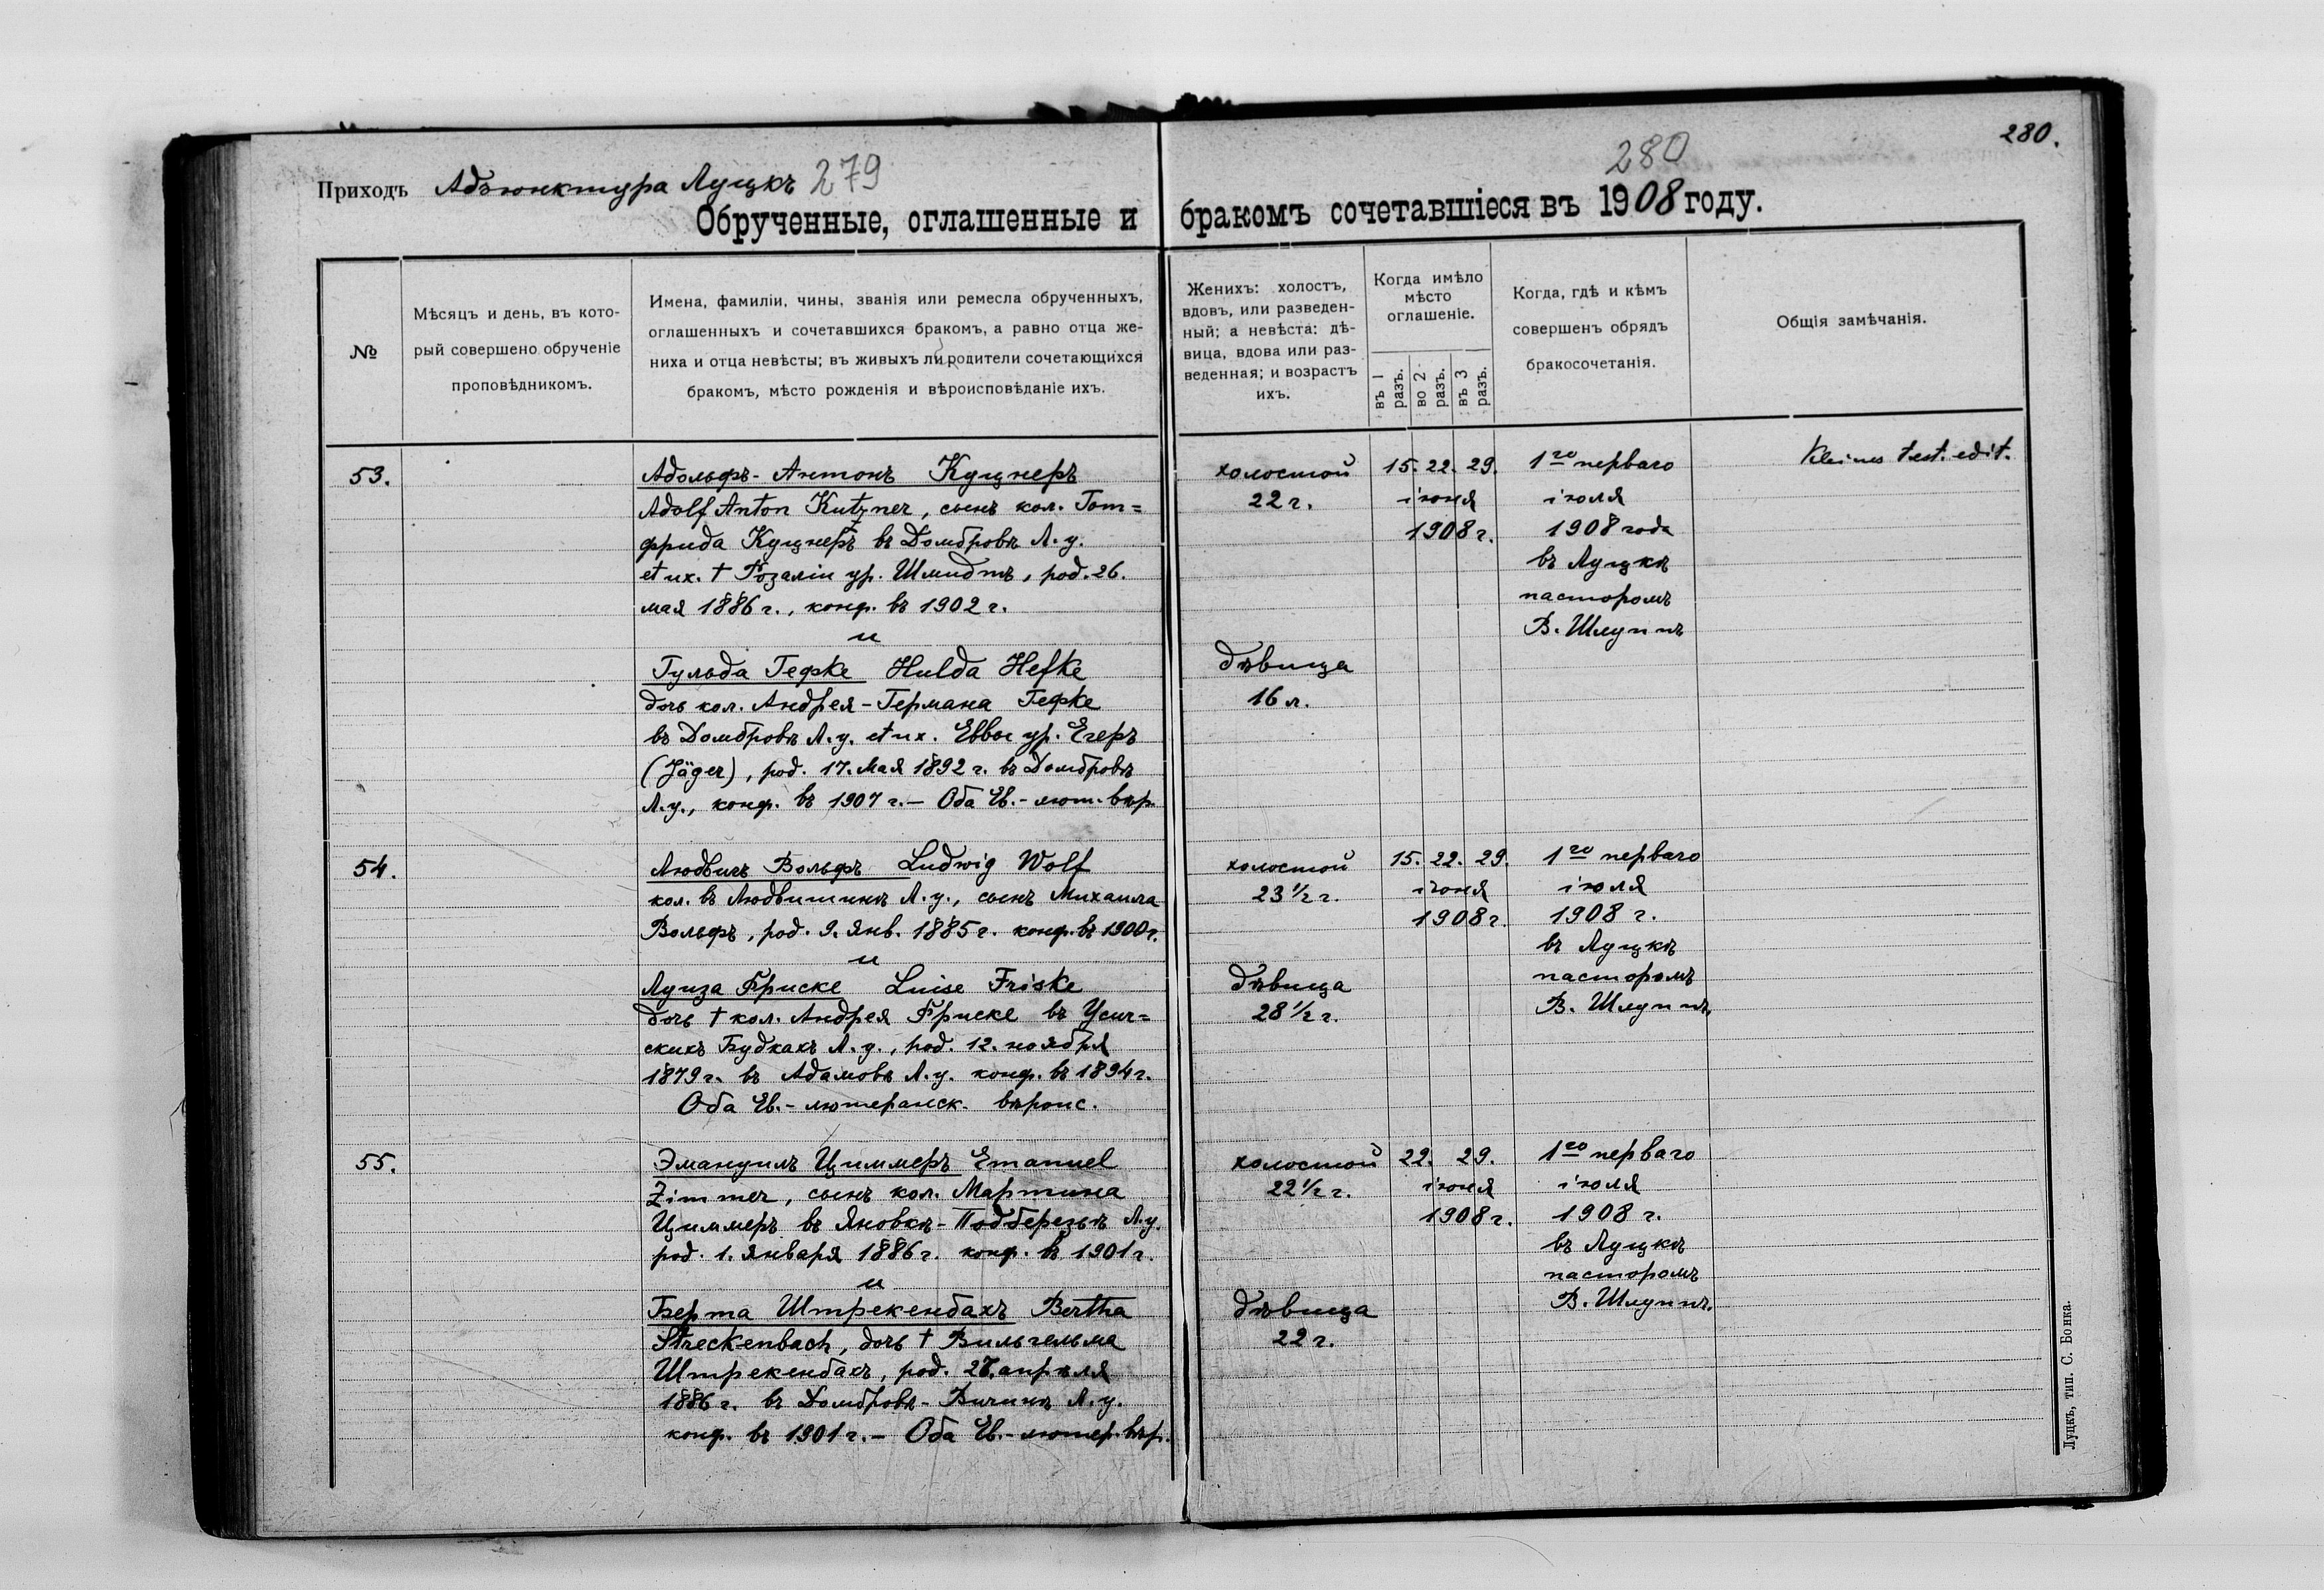 Приходъ Адъюнктура Луцкъ 279
280
280.
Обрученные, оглашенные и бракомъ сочетавшіеся въ 1908 году.
№
Мѣсяцъ и день, въ кото-
рый совершено обрученіе
проповѣдникомъ.
Имена, фамиліи, чины, званія или ремесла обрученныхъ,
оглашенныхъ и сочетавшихся бракомъ, а равно отца же-
ниха и отца невѣсты; въ живыхъ ли родители сочетающихся
бракомъ, мѣсто рожденія и вѣроисповѣданіе ихъ.
Женихъ: холостъ,
вдовъ, или разведен-
ный; а невѣста: дѣ-
вица, вдова или раз-
веденная; и возрастъ
ихъ.
Когда имѣло
мѣсто
оглашеніе.
въ 1 разъ.
во 2 разъ.
въ 3 разъ.
Когда, гдѣ и кѣмъ
совершенъ обрядъ
бракосочетанія.
Общія замѣчанія.
53.
Адольфъ-Антонъ Куцнеръ
Adolf Anton Kutzner, сынъ кол. Гот=
фрида Куцнеръ въ Домбровѣ Л. у.
et ux. † Розаліи ур. Шмидтъ, род. 26.
мая 1886 г., конф. въ 1902 г.
и
Гульда Гефке Hulda Hefke
дочь кол. Андрея-Германа Гефке
въ Домбровѣ Л. у. et ux. Еввы ур. Егеръ
(Jäger), род. 17. мая 1892 г. въ Домбровѣ
Л. у., конф. въ 1907 г. — Оба Ев.-лют. вѣр.
холостой
22 г.
дѣвица
16 л.
15. 22. 29.
іюня
1908 г.
1го перваго
іюля
1908 года
въ Луцкѣ
пасторомъ
В. Шлуппъ
Kleines test. edit.
54.
Людвигъ Вольфъ Ludwig Wolf
кол. въ Людвишинѣ Л. у., сынъ Михаила
Вольфъ, род. 9. янв. 1885 г. конф. въ 1900 г.
и
Луиза Фриске Luise Friske
дочь † кол. Андрея Фриске въ Усич=
скихъ Будкахъ Л. у., род. 12. ноября
1879 г. въ Адамовѣ Л. у. конф. въ 1894 г.
Оба Ев.-лютеранск. вѣроис.
холостой
23 1/2 г.
дѣвица
28 1/2 г.
15. 22. 29.
іюня
1908 г.
1го перваго
іюля
1908 г.
въ Луцкѣ
пасторомъ
В. Шлуппъ.
55.
Эмануилъ Циммеръ Emanuel
Zimmer, сынъ кол. Мартина
Циммеръ въ Яновкѣ-Подберезьѣ Л. у.
род. 1. января 1886 г. конф. въ 1901 г.
и
Берта Штрекенбахъ Bertha
Streckenbach, дочь † Вильгельма
Штрекенбахъ, род. апрѣля
1886 г. въ Домбровѣ-Вичинѣ Л. у.
конф. въ 1901 г. — Оба Ев.-лютер. вѣр.
холостой
22 1/2 г.
дѣвица
22 г.
22. 29.
іюня
1908 г.
1го перваго
іюля
1908 г.
въ Луцкѣ
пасторомъ
В. Шлуппъ.
Луцкъ, тип. С. Бонка.